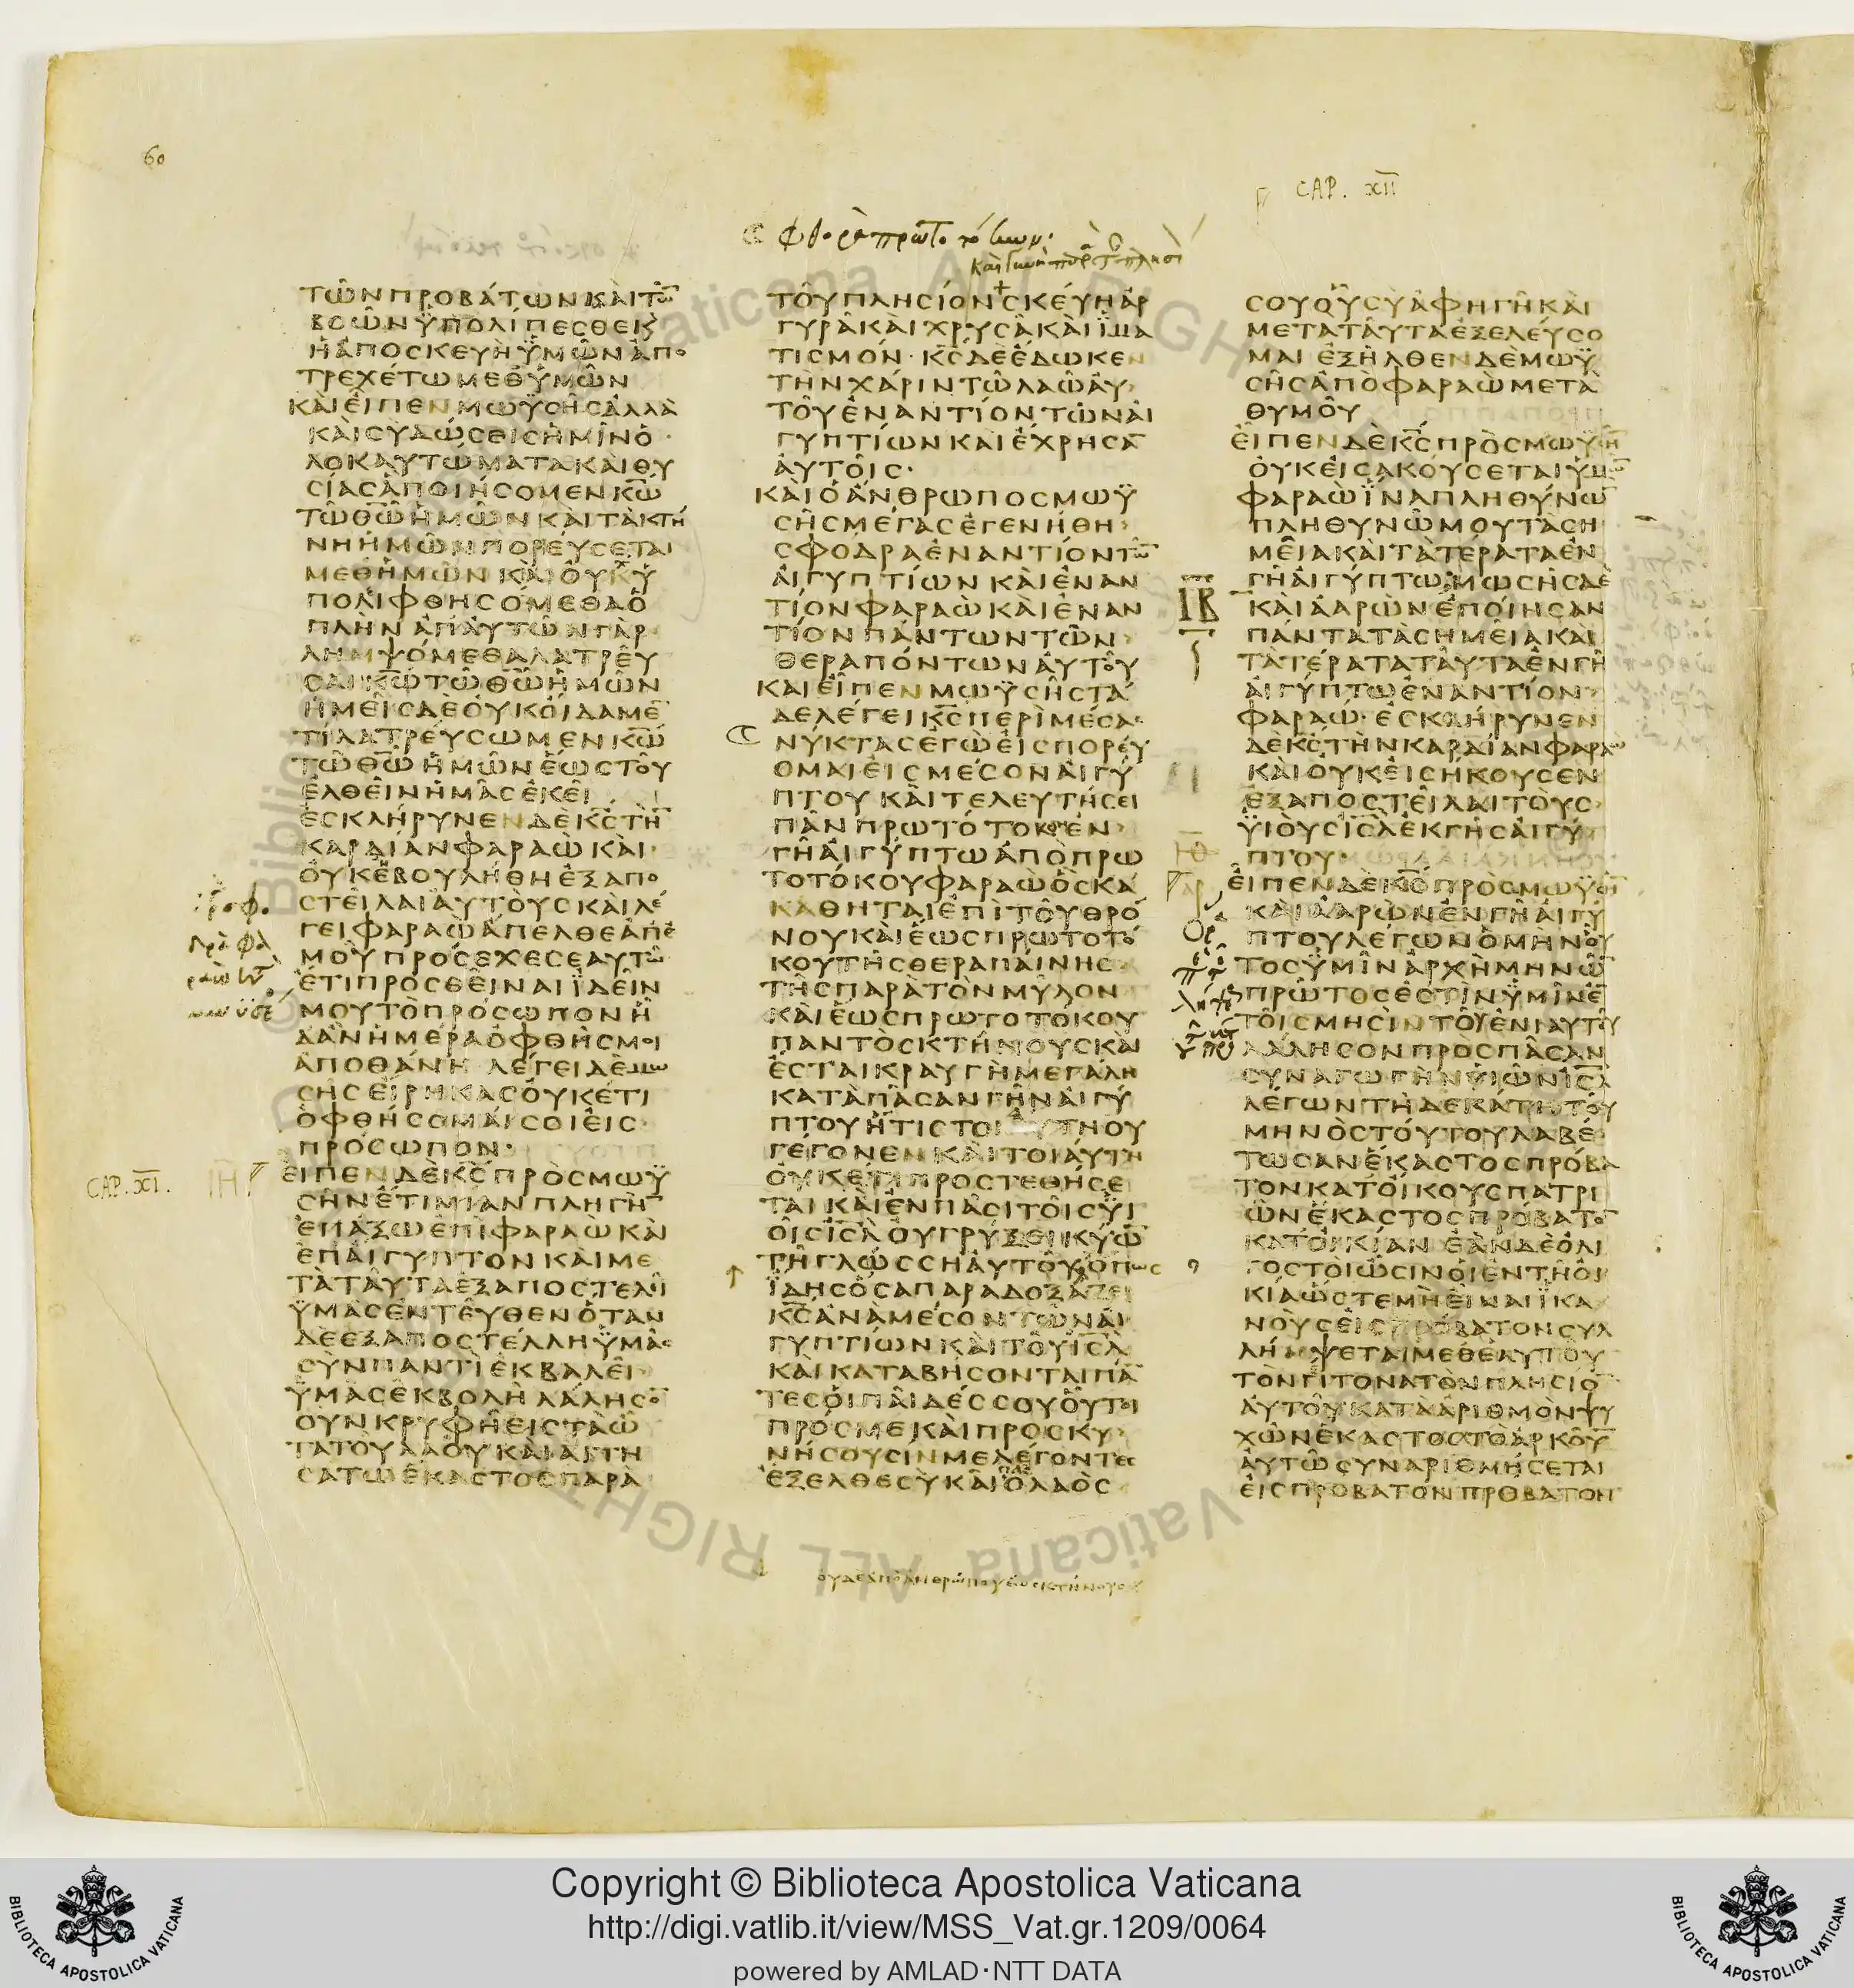 60
CAP. XII
ΤΩΝΠΡΟΒΑΤΩΝΚΑΙΤΩ̅
ΒΟΩΝΫΠΟΛΙΠΕΣΘΕΚΑΙ
ΗΑΠΟΣΚΕΥΗΫΜΩΝΑΠΟ
ΤΡΕΧΕΤΩΜΕΘΫΜΩΝ
ΚΑΙΕΙΠΕΝΜΩΫΣΗΣΑΛΛΑ
ΚΑΙΣΥΔΩΣΕΙΣΗΜΙΝΟ
ΛΟΚΑΥΤΩΜΑΤΑΚΑΙΘΥ
ΣΙΑΣΑΠΟΙΗΣΟΜΕΝΚ̅Ω̅
ΤΩΘ̅Ω̅ΗΜΩΝΚΑΙΤΑΚΤΗ
ΝΗΗΜΩΝΠΟΡΕΥΣΕΤΑΙ
ΜΕΘΗΜΩΝΚΑΙΟΥΧΫ
ΠΟΛΙΦΘΗΣΟΜΕΘΑΟ
ΠΛΗΝΑΠΑΥΤΩΝΓΑΡ
ΛΗΜΨΟΜΕΘΑΛΑΤΡΕΥ
ΣΑΙΚ̅Ω̅ΤΩΘ̅Ω̅ΗΜΩΝ
ΗΜΕΙΣΔΕΟΥΚΟΙΔΑΜΕ̅
ΤΙΛΑΤΡΕΥΣΩΜΕΝΚ̅Ω̅
ΤΩΘ̅Ω̅ΗΜΩΝΕΩΣΤΟΥ
ΕΛΘΕΙΝΗΜΑΣΕΚΕΙ
ΕΣΚΛΗΡΥΝΕΝΔΕΚ̅Σ̅ΤΗ̅
ΚΑΡΔΙΑΝΦΑΡΑΩΚΑΙ
ΟΥΚΕΒΟΥΛΗΘΗΕΞΑΠΟ
ΣΤΕΙΛΑΙΑΥΤΟΥΣΚΑΙΛΕ
ΓΕΙΦΑΡΑΩΑΠΕΛΘΕΑΠΕ
ΜΟΥΠΡΟΣΕΧΕΣΕΑΥΤΩ
ΕΤΙΠΡΟΣΘΕΙΝΑΙΪΔΕΙΝ
ΜΟΥΤΟΠΡΟΣΩΠΟΝΗ
ΔΑΝΗΜΕΡΑΟΦΘΗΣΜΟΙ
ΑΠΟΘΑΝΗ ΛΕΓΕΙΔΕΜΩ
ΣΗΣΕΙΡΗΚΑΣΟΥΚΕΤΙ
ΟΦΘΗΣΟΜΑΙΣΟΙΕΙΣ
ΠΡΟΣΩΠΟΝ·
CAP. XI.
ΕΙΠΕΝΔΕΚ̅Σ̅ΠΡΟΣΜΩΫ
ΣΗΝΕΤΙΜΙΑΝΠΛΗΓΗ̅
ΕΠΑΞΩΕΠΙΦΑΡΑΩΚΑΙ
ΕΠΑΙΓΥΠΤΟΝΚΑΙΜΕ
ΤΑΤΑΥΤΑΕΞΑΠΟΣΤΕΛΕΙ
ΫΜΑΣΕΝΤΕΥΘΕΝΟΤΑΝ
ΔΕΕΞΑΠΟΣΤΕΛΛΗΫΜΑΣ
ΣΥΝΠΑΝΤΙΕΚΒΑΛΕΙ
ΫΜΑΣΕΚΒΟΛΗΛΑΛΗΣΟ̅
ΟΥΝΚΡΥΦΗΕΙΣΤΑΩ
ΤΑΤΟΥΛΑΟΥΚΑΙΑΙΤΗ
ΣΑΤΩΕΚΑΣΤΟΣΠΑΡΑ
ΤΟΥΠΛΗΣΙΟΝΣΚΕΥΗΑΡ
ΓΥΡΑΚΑΙΧΡΥΣΑΚΑΙΪΜΑ
ΤΙΣΜΟΝ·Κ̅Σ̅ΔΕΕΔΩΚΕΝ
ΤΗΝΧΑΡΙΝΤΩΛΑΩΑΥ
ΤΟΥΕΝΑΝΤΙΟΝΤΩΝΑΙ
ΓΥΠΤΙΩΝΚΑΙΕΧΡΗΣΑ̅
ΑΥΤΟΙΣ·
ΚΑΙΟΑΝΘΡΩΠΟΣΜΩΫ
ΣΗΣΜΕΓΑΣΕΓΕΝΗΘΗ
ΣΦΟΔΡΑΕΝΑΝΤΙΟΝΤΩ̅
ΑΙΓΥΠΤΙΩΝΚΑΙΕΝΑΝ
ΤΙΟΝΦΑΡΑΩΚΑΙΕΝΑΝ
ΤΙΟΝΠΑΝΤΩΝΤΩΝ
ΘΕΡΑΠΟΝΤΩΝΑΥΤΟΥ
ΚΑΙΕΙΠΕΝΜΩΫΣΗΣΤΑ
ΔΕΛΕΓΕΙΚ̅Σ̅ΠΕΡΙΜΕΣΑΣ
ΝΥΚΤΑΣΕΓΩΕΙΣΠΟΡΕΥ
ΟΜΑΙΕΙΣΜΕΣΟΝΑΙΓΥ
ΠΤΟΥΚΑΙΤΕΛΕΥΤΗΣΕΙ
ΠΑΝΠΡΩΤΟΤΟΚΟΝΕΝ
ΓΗΑΙΓΥΠΤΩΑΠΟΠΡΩ
ΤΟΤΟΚΟΥΦΑΡΑΩΟΣΚΑ
ΚΑΘΗΤΑΙΕΠΙΤΟΥΘΡΟ
ΝΟΥΚΑΙΕΩΣΠΡΩΤΟΤΟ
ΚΟΥΤΗΣΘΕΡΑΠΑΙΝΗΣ
ΤΗΣΠΑΡΑΤΟΝΜΥΛΟΝ
ΚΑΙΕΩΣΠΡΩΤΟΤΟΚΟΥ
ΠΑΝΤΟΣΚΤΗΝΟΥΣΚΑΙ
ΕΣΤΑΙΚΡΑΥΓΗΜΕΓΑΛΗ
ΚΑΤΑΠΑΣΑΝΓΗΝΑΙΓΥ
ΠΤΟΥΗΤΙΣΤΟΙΑΥΤΗΟΥ
ΓΕΓΟΝΕΝΚΑΙΤΟΙΑΥΤΗ
ΟΥΚΕΤΙΠΡΟΣΤΕΘΗΣΕ
ΤΑΙΚΑΙΕΝΠΑΣΙΤΟΙΣΫΙ
ΟΙΣΙ̅Σ̅Λ̅ΟΥΓΡΥΞΕΙΚΥΩ̅
ΤΗΓΛΩΣΣΗΑΥΤΟΥΟΠΩΣ
ΪΔΗΣΟΣΑΠΑΡΑΔΟΞΑΖΕΙ
Κ̅Σ̅ΑΝΑΜΕΣΟΝΤΩΝΑΙ
ΓΥΠΤΙΩΝΚΑΙΤΟΥΙ̅Σ̅Λ̅
ΚΑΙΚΑΤΑΒΗΣΟΝΤΑΙΠΑ̅
ΤΕΣΟΙΠΑΙΔΕΣΣΟΥΟΥΤΟΙ
ΠΡΟΣΜΕΚΑΙΠΡΟΣΚΥ
ΝΗΣΟΥΣΙΝΜΕΛΕΓΟΝΤΕΣ
ΕΞΕΛΘΕΣΥΚΑΙΟΛΑΟΣ
ουδεαποανθρωπουεωσκτηνουσ
ΣΟΥΟΥΣΥΑΦΗΓΗΚΑΙ
ΜΕΤΑΤΑΥΤΑΕΞΕΛΕΥΣΟ
ΜΑΙΕΞΗΛΘΕΝΔΕΜΩΫ
ΣΗΣΑΠΟΦΑΡΑΩΜΕΤΑ
ΘΥΜΟΥ
ΕΙΠΕΝΔΕΚ̅Σ̅ΠΡΟΣΜΩΫΣΗ̅
ΟΥΚΕΙΣΑΚΟΥΣΕΤΑΙΫΜΩ̅
ΦΑΡΑΩΪΝΑΠΛΗΘΥΝΩ̅
ΠΛΗΘΥΝΩΜΟΥΤΑΣΗ
ΜΕΙΑΚΑΙΤΑΤΕΡΑΤΑΕΝ
ΓΗΑΙΓΥΠΤΩ·ΜΩΣΗΣΔΕ
ΙΒ
ΚΑΙΑΑΡΩΝΕΠΟΙΗΣΑΝ
ΠΑΝΤΑΤΑΣΗΜΕΙΑΚΑΙ
ΤΑΤΕΡΑΤΑΤΑΥΤΑΕΝΓΗ
ΑΙΓΥΠΤΩΕΝΑΝΤΙΟΝ
ΦΑΡΑΩ·ΕΣΚΛΗΡΥΝΕΝ
ΔΕΚ̅Σ̅ΤΗΝΚΑΡΔΙΑΝΦΑΡΑΩ
ΚΑΙΟΥΚΕΙΣΗΚΟΥΣΕΝ
ΕΞΑΠΟΣΤΕΙΛΑΙΤΟΥΣ
ΫΙΟΥΣΙ̅Σ̅Λ̅ΕΚΓΗΣΑΙΓΥ
ΠΤΟΥ
ΕΙΠΕΝΔΕΚ̅Σ̅ΠΡΟΣΜΩΫΣΗ̅
ΚΑΙΑΑΡΩΝΕΝΓΗΑΙΓΥ
ΠΤΟΥΛΕΓΩΝΟΜΗΝΟΥ
ΤΟΣΫΜΙΝΑΡΧΗΜΗΝΩ̅
ΠΡΩΤΟΣΕΣΤΙΝΫΜΙΝΕ̅
ΤΟΙΣΜΗΣΙΝΤΟΥΕΝΙΑΥΤΟΥ
ΛΑΛΗΣΟΝΠΡΟΣΠΑΣΑΝ
ΣΥΝΑΓΩΓΗΝΫΙΩΝΙ̅Σ̅Λ̅
ΛΕΓΩΝΤΗΔΕΚΑΤΗΤΟΥ
ΜΗΝΟΣΤΟΥΤΟΥΛΑΒΕ
ΤΩΣΑΝΕΚΑΣΤΟΣΠΡΟΒΑ
ΤΟΝΚΑΤΟΙΚΟΥΣΠΑΤΡΙ
ΩΝΕΚΑΣΤΟΣΠΡΟΒΑΤΟ̅
ΚΑΤΟΙΚΙΑΝΕΑΝΔΕΟΛΙ
ΓΟΣΤΟΙΩΣΙΝΟΙΕΝΤΗΟΙ
ΚΙΑΩΣΤΕΜΗΕΙΝΑΙΪΚΑ
ΝΟΥΣΕΙΣΠΡΟΒΑΤΟΝΣΥΛ
ΛΗΜΨΕΤΑΙΜΕΘΕΑΥΤΟΥ
ΤΟΝΓΙΤΟΝΑΤΟΝΠΛΗΣΙΟ̅
ΑΥΤΟΥΚΑΤΑΑΡΙΘΜΟΝΨΥ
ΧΩΝΕΚΑΣΤΟΣΤΟΑΡΚΟΥ̅
ΑΥΤΩΣΥΝΑΡΙΘΜΗΣΕΤΑΙ
ΕΙΣΠΡΟΒΑΤΟΝΠΡΟΒΑΤΟΝ
Copyright © Biblioteca Apostolica Vaticana
http://digi.vatlib.it/view/MSS_Vat.gr.1209/0064
powered by AMLAD·NTT DATA
BIBLIOTECA APOSTOLICA VATICANA
BIBLIOTECA APOSTOLICA VATICANA